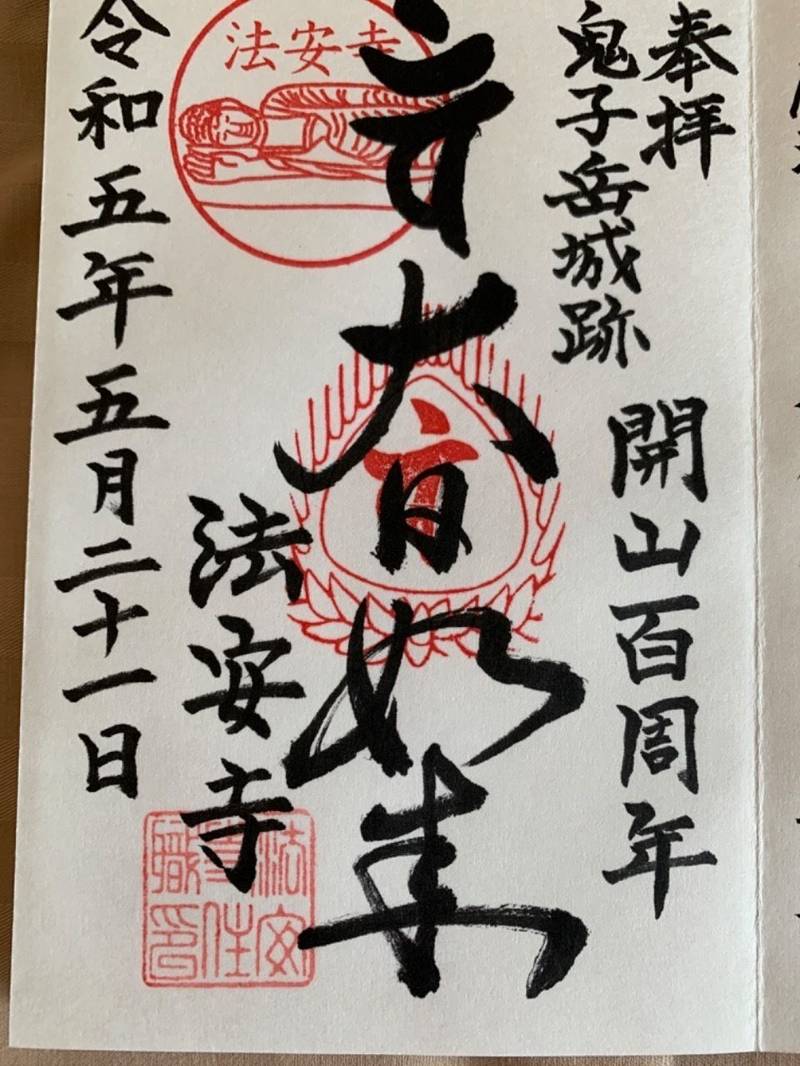 奉拝
鬼子岳城跡
開山百周年
大日如来
法安寺
法安寺
法安寺住職印
令和五年五月二十一日